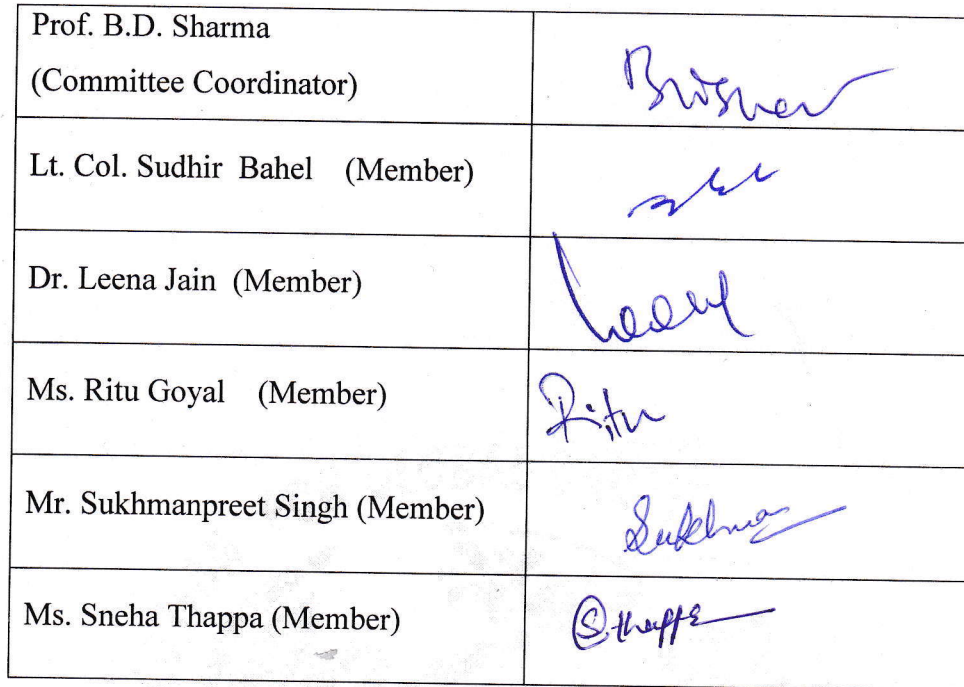 Prof. B.D. Sharma
(Committee Coordinator)
Lt. Col. Sudhir Bahel (Member)
Dr. Leena Jain (Member)
Ms. Ritu Goyal (Member)
Ritu
Mr. Sukhmanpreet Singh (Member)
Sukhman
Ms. Sneha Thappa (Member)